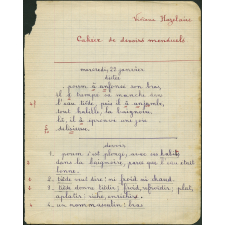 Cahier de devoirs mensuels
mercredi, 22 janvier
dictée
poum a enfoncé son bras,
il a trempé sa manche dans
l'eau tiède, puis il a
tout habillé, la baignoire,
et, il a éprouvé une joie
délicieuse.
devoir
1. poum s'est plongé, avec ses habits
dans la baignoire, parce que l'eau était
bonne.
2. tiède veut dire: ni froid ni chaud.
3. tiède donne tiédir; froid, refroidir; plat,
aplatir; riche, enrichir.
4. un nom masculin: bras